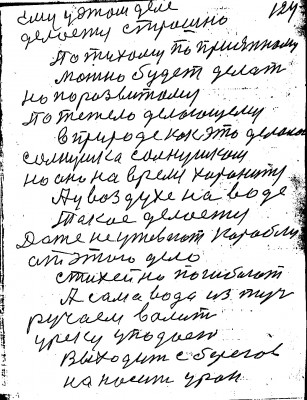 ему у этом деле
124
делаету страшно
По тихому то приятному
можно будет делат
но поразвитому
По тежело делающему
В природе как это делаю
солнушка солнушком
но оно на время
А у воздухе на воде
такое делаету
Даже неутевают карабли
от этого дело
стихейно погибают
А сама вода из туч
ручаем валит
уреку упадает
Выходит с берегов
наносит урон